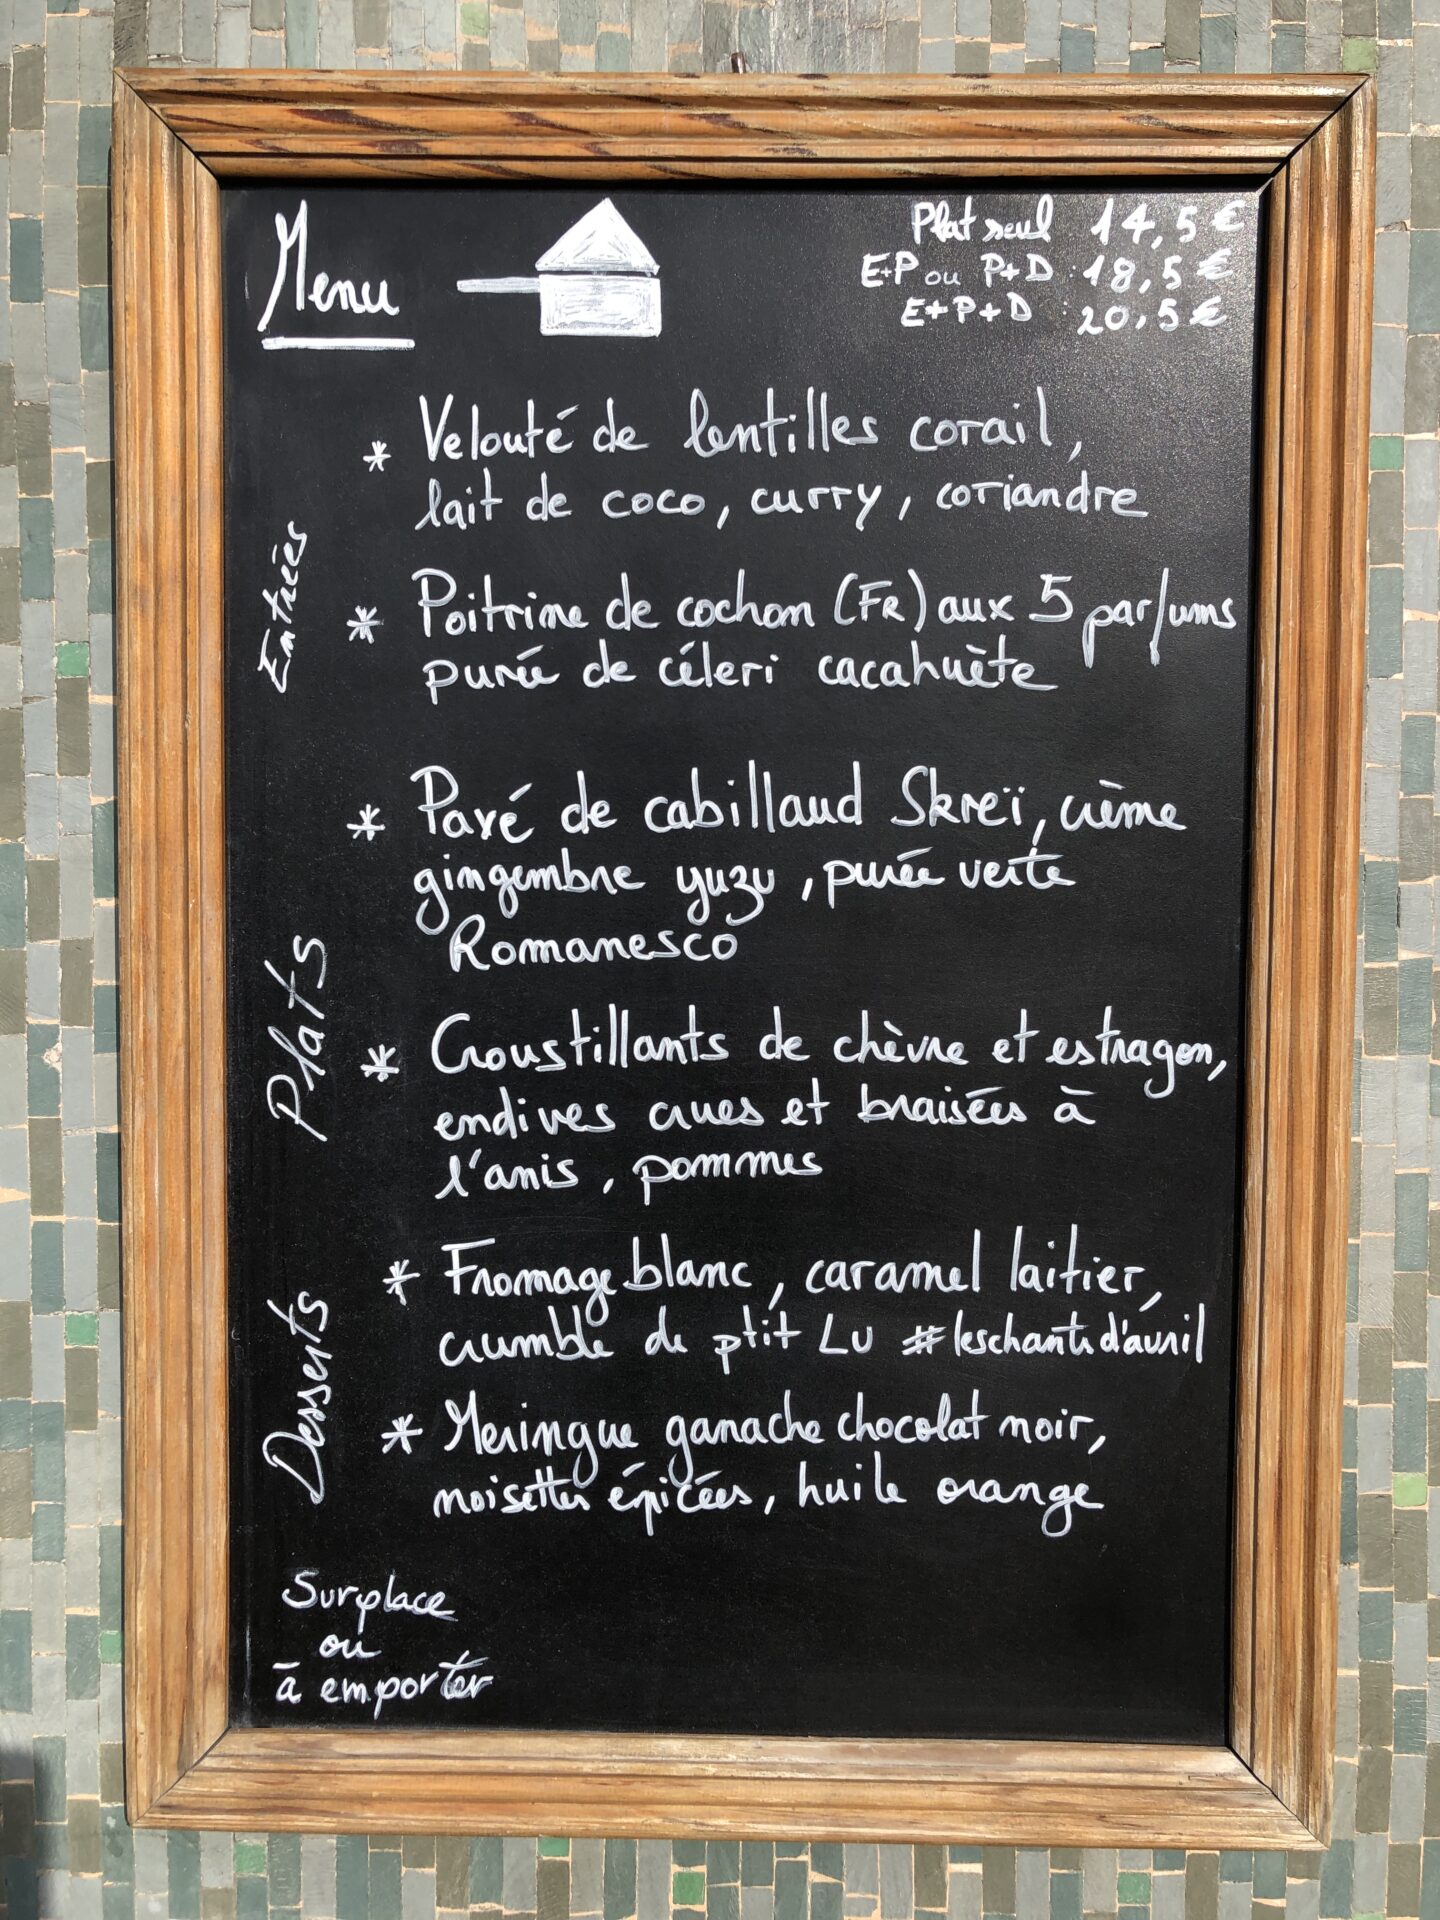 Menu
Plat seul 14,5€
E+P ou P+D : 18,5€
E+P+D : 20,5€
Entrées
* Velouté de lentilles corail,
lait de coco, curry, coriandre
* Poitrine de cochon (FR) aux 5 parfums
purée de céleri cacahuète
Plats
* Pavé de cabillaud Skreï, crème
gingembre yuzu, purée verte
Romanesco
* Croustillants de chèvre et estragon,
endives crues et braisées à
l'anis, pommes
Desserts
* Fromage blanc, caramel laitier,
crumble de ptit Lu #leschantsd'avril
* Meringue ganache chocolat noir,
noisettes épicées, huile orange
Sur place
ou
à emporter